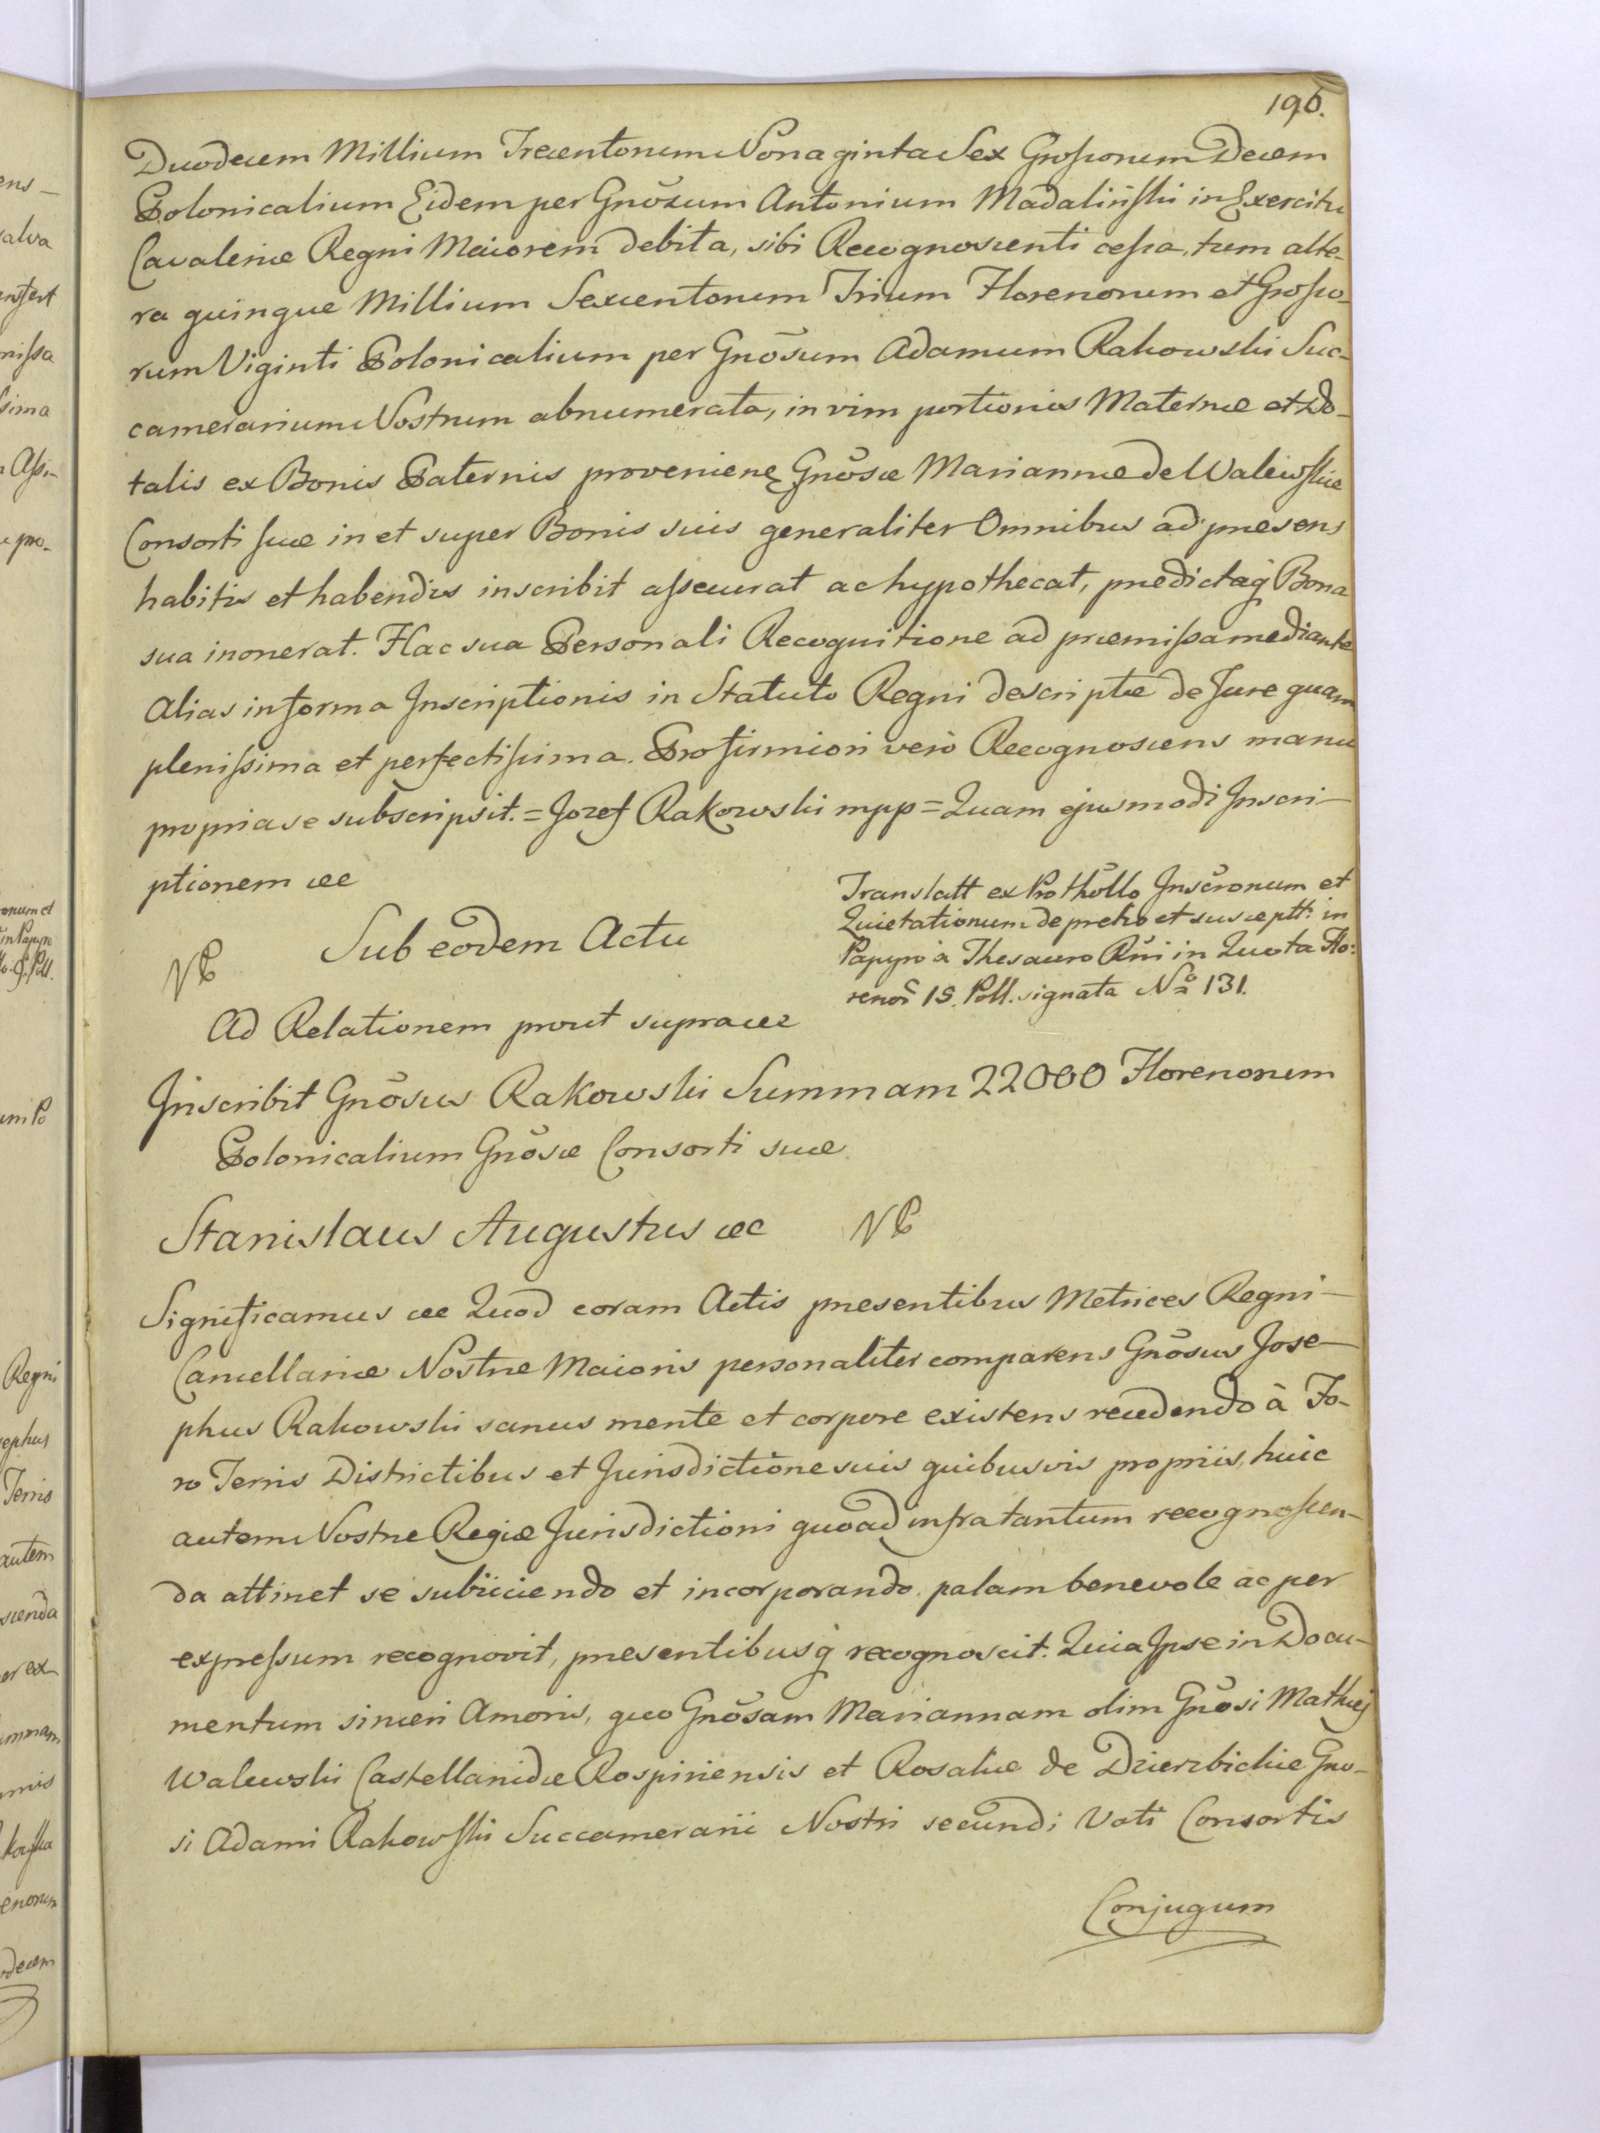 196.
Duodecem Millium Trecentorum Nonaginta Sex Grossorum Decem
Polonicalium Eidem per Gnõsum Antonium Madaliński in Exercitu
Cavaleriæ Regni Maiorem debita, sibi Recognoscenti cessa, tum alte-
ra quinque Millium Sexcentorum Trium Florenorum et Grosso-
rum Viginti Polonicalium per Gnõsum Adamum Rakowski Suc-
camerarium Nostrum abnumerata, in vim portionis Maternæ et Do-
talis ex Bonis Paternis provenien Gnõsæ Mariannæ de Walewskie
Consorti suæ in et super Bonis suis generaliter Omnibus ad præsens
habitis et habendis inscribit assecurat ac hypothecat, prædictaq̃ Bona
sua inonerat. Hac sua Personali Recognitione ad præmissa mediante
Alias in forma Inscriptionis in Statuto Regni descriptæ de Jure quam
plenissima et perfectissima. Pro firmiori verò Recognoscens manu
propria se subscripsit. = Jozef Rakowski mpp = Quam ejusmodi Inscri-
ptionem &c
Translatt ex Prothõllo Inscrõnum et
Quietationum de pretio et susceptt: in
Papyro à Thesauro Rñi in Quota Flo:
renor̃ 15. Poll. signata Nº 131.
Sub eodem Actu
NP
Ad Relationem prout supra &c
Inscribit Gnõsus Rakowski Summam 22000 Florenorum
Polonicalium Gnõsæ Consorti suæ
Stanislaus Augustus &c NP
Significamus &c Quod coram Actis præsentibus Metrices Regni
Cancellariæ Nostræ Maioris personaliter comparens Gnõsus Jose-
phus Rakowski sanus mente et corpore existens recedendo à Fo-
ro Terris Districtibus et Jurisdictione suis quibusvis propriis, huic
autem Nostræ Regiæ Jurisdictioni quoad infra tantum recognoscen-
da attinet se subiiciendo et incorporando palam benevole ac per
expressum recognovit, præsentibusq̃ recognoscit. Quia Ipse in Docu-
mentum sinceri Amoris, quo Gnõsam Mariannam olim Gnõsi Mathiej
Walewski Castellanidæ Rospiriensis et Rosaliæ de Dzierzbickie Gnõ-
si Adami Rakowski Succamerarii Nostri secundi Voti Consortis
Conjugum